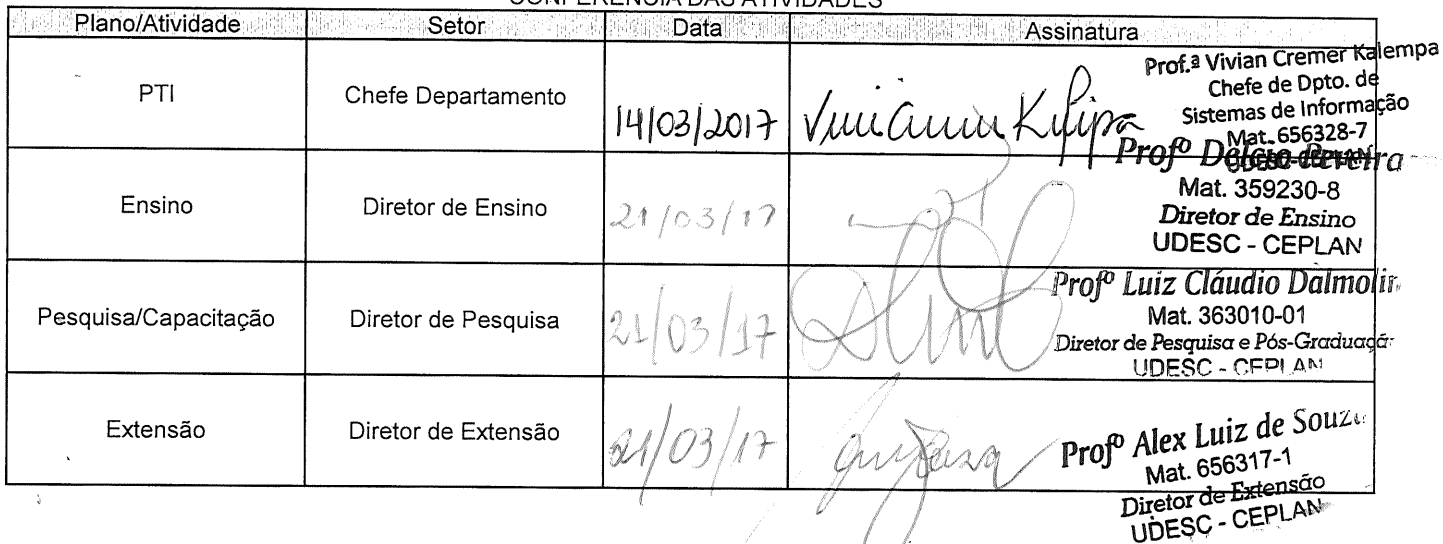 CONFERÊNCIA DAS ATIVIDADES
Plano/Atividade Setor Data Assinatura
PTI Chefe Departamento 14/03/2017
Prof.ª Vivian Cremer Kalempa
Chefe de Dpto. de
Sistemas de Informação
Mat. 656328-7
UDESC-CEPLAN
Ensino Diretor de Ensino 21/03/17
Profº Délcio Pereira
Mat. 359230-8
Diretor de Ensino
UDESC - CEPLAN
Pesquisa/Capacitação Diretor de Pesquisa 21/03/17
Profº Luiz Cláudio Dalmolin
Mat. 363010-01
Diretor de Pesquisa e Pós-Graduaçã
UDESC - CEPLAN
Extensão Diretor de Extensão 21/03/17
Profº Alex Luiz de Souza
Mat. 656317-1
Diretor de Extensão
UDESC - CEPLAN